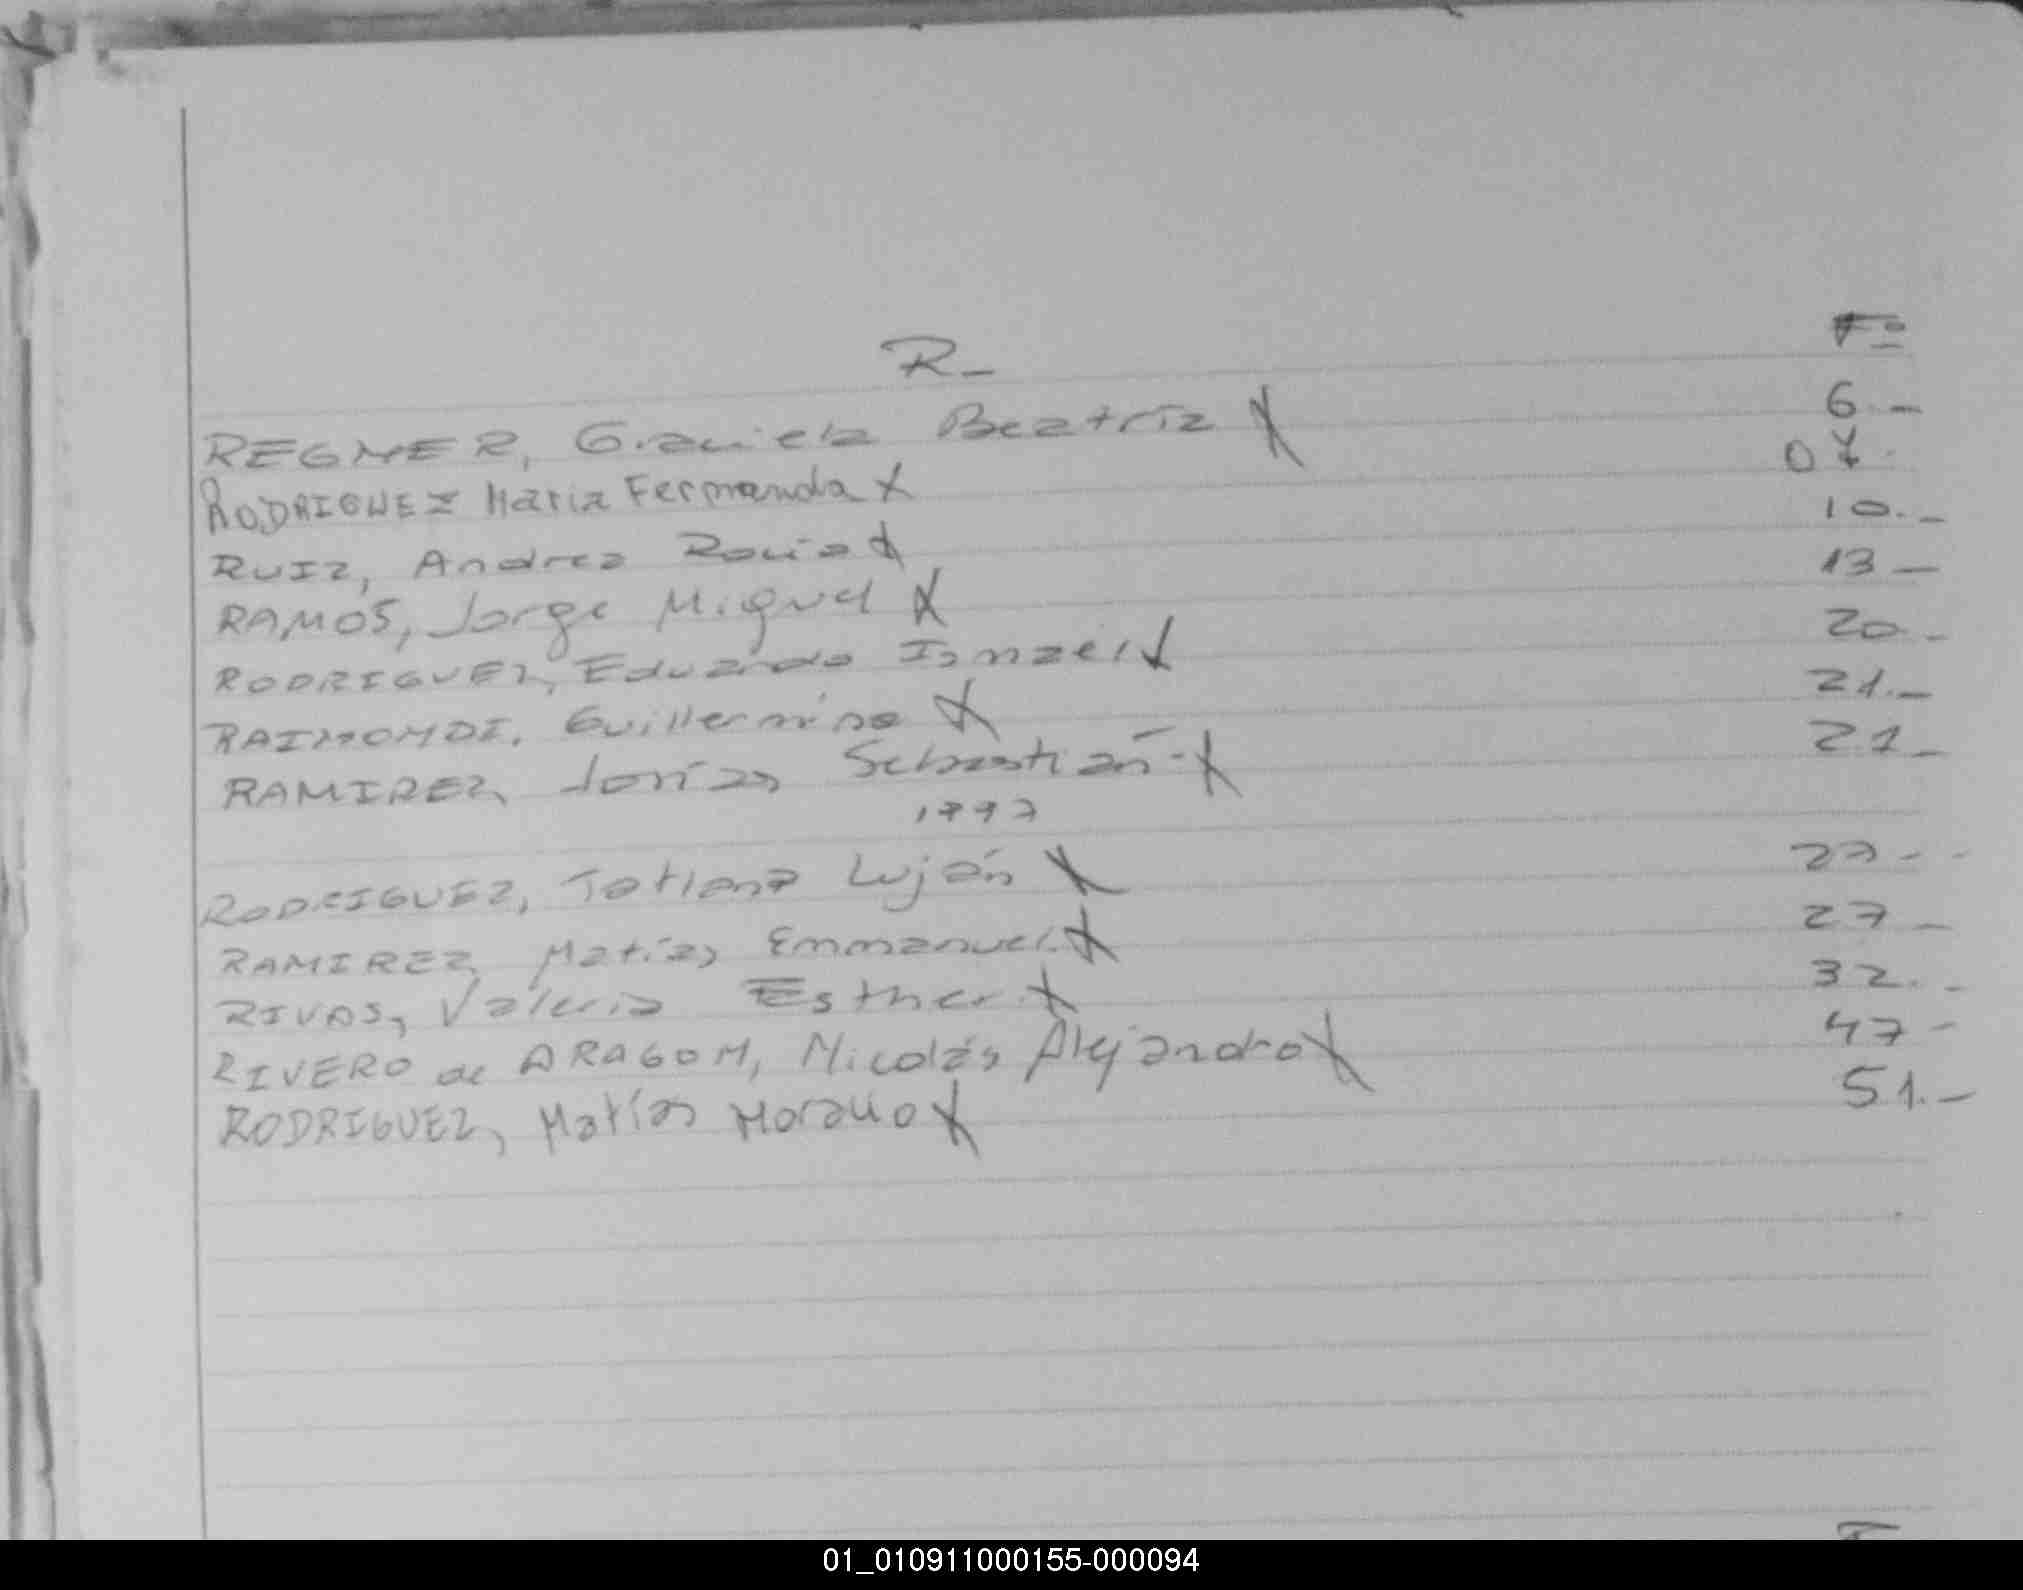 R_ Fº
REGNER, Graciela Beatriz X 6._
RODRIGUEZ Maria Fernanda X 07.
RUIZ, Andrea Rocio X 10._
RAMOS, Jorge Miguel X 13_
RODRIGUEZ, Eduardo Ismael X 20._
RAIMONDI, Guillermina X 21._
RAMIREZ, Sebastián X 21_
1997
RODRIGUEZ, Tatiana Luján X 27--
RAMIREZ, Matías Emmanuel X 27_
RIVAS, Valeria Esther X 32._
RIVERO de ARAGON, Nicolás Alejandro X 47-
RODRIGUEZ, Matías Horacio X 51._
01_010911000155-000094